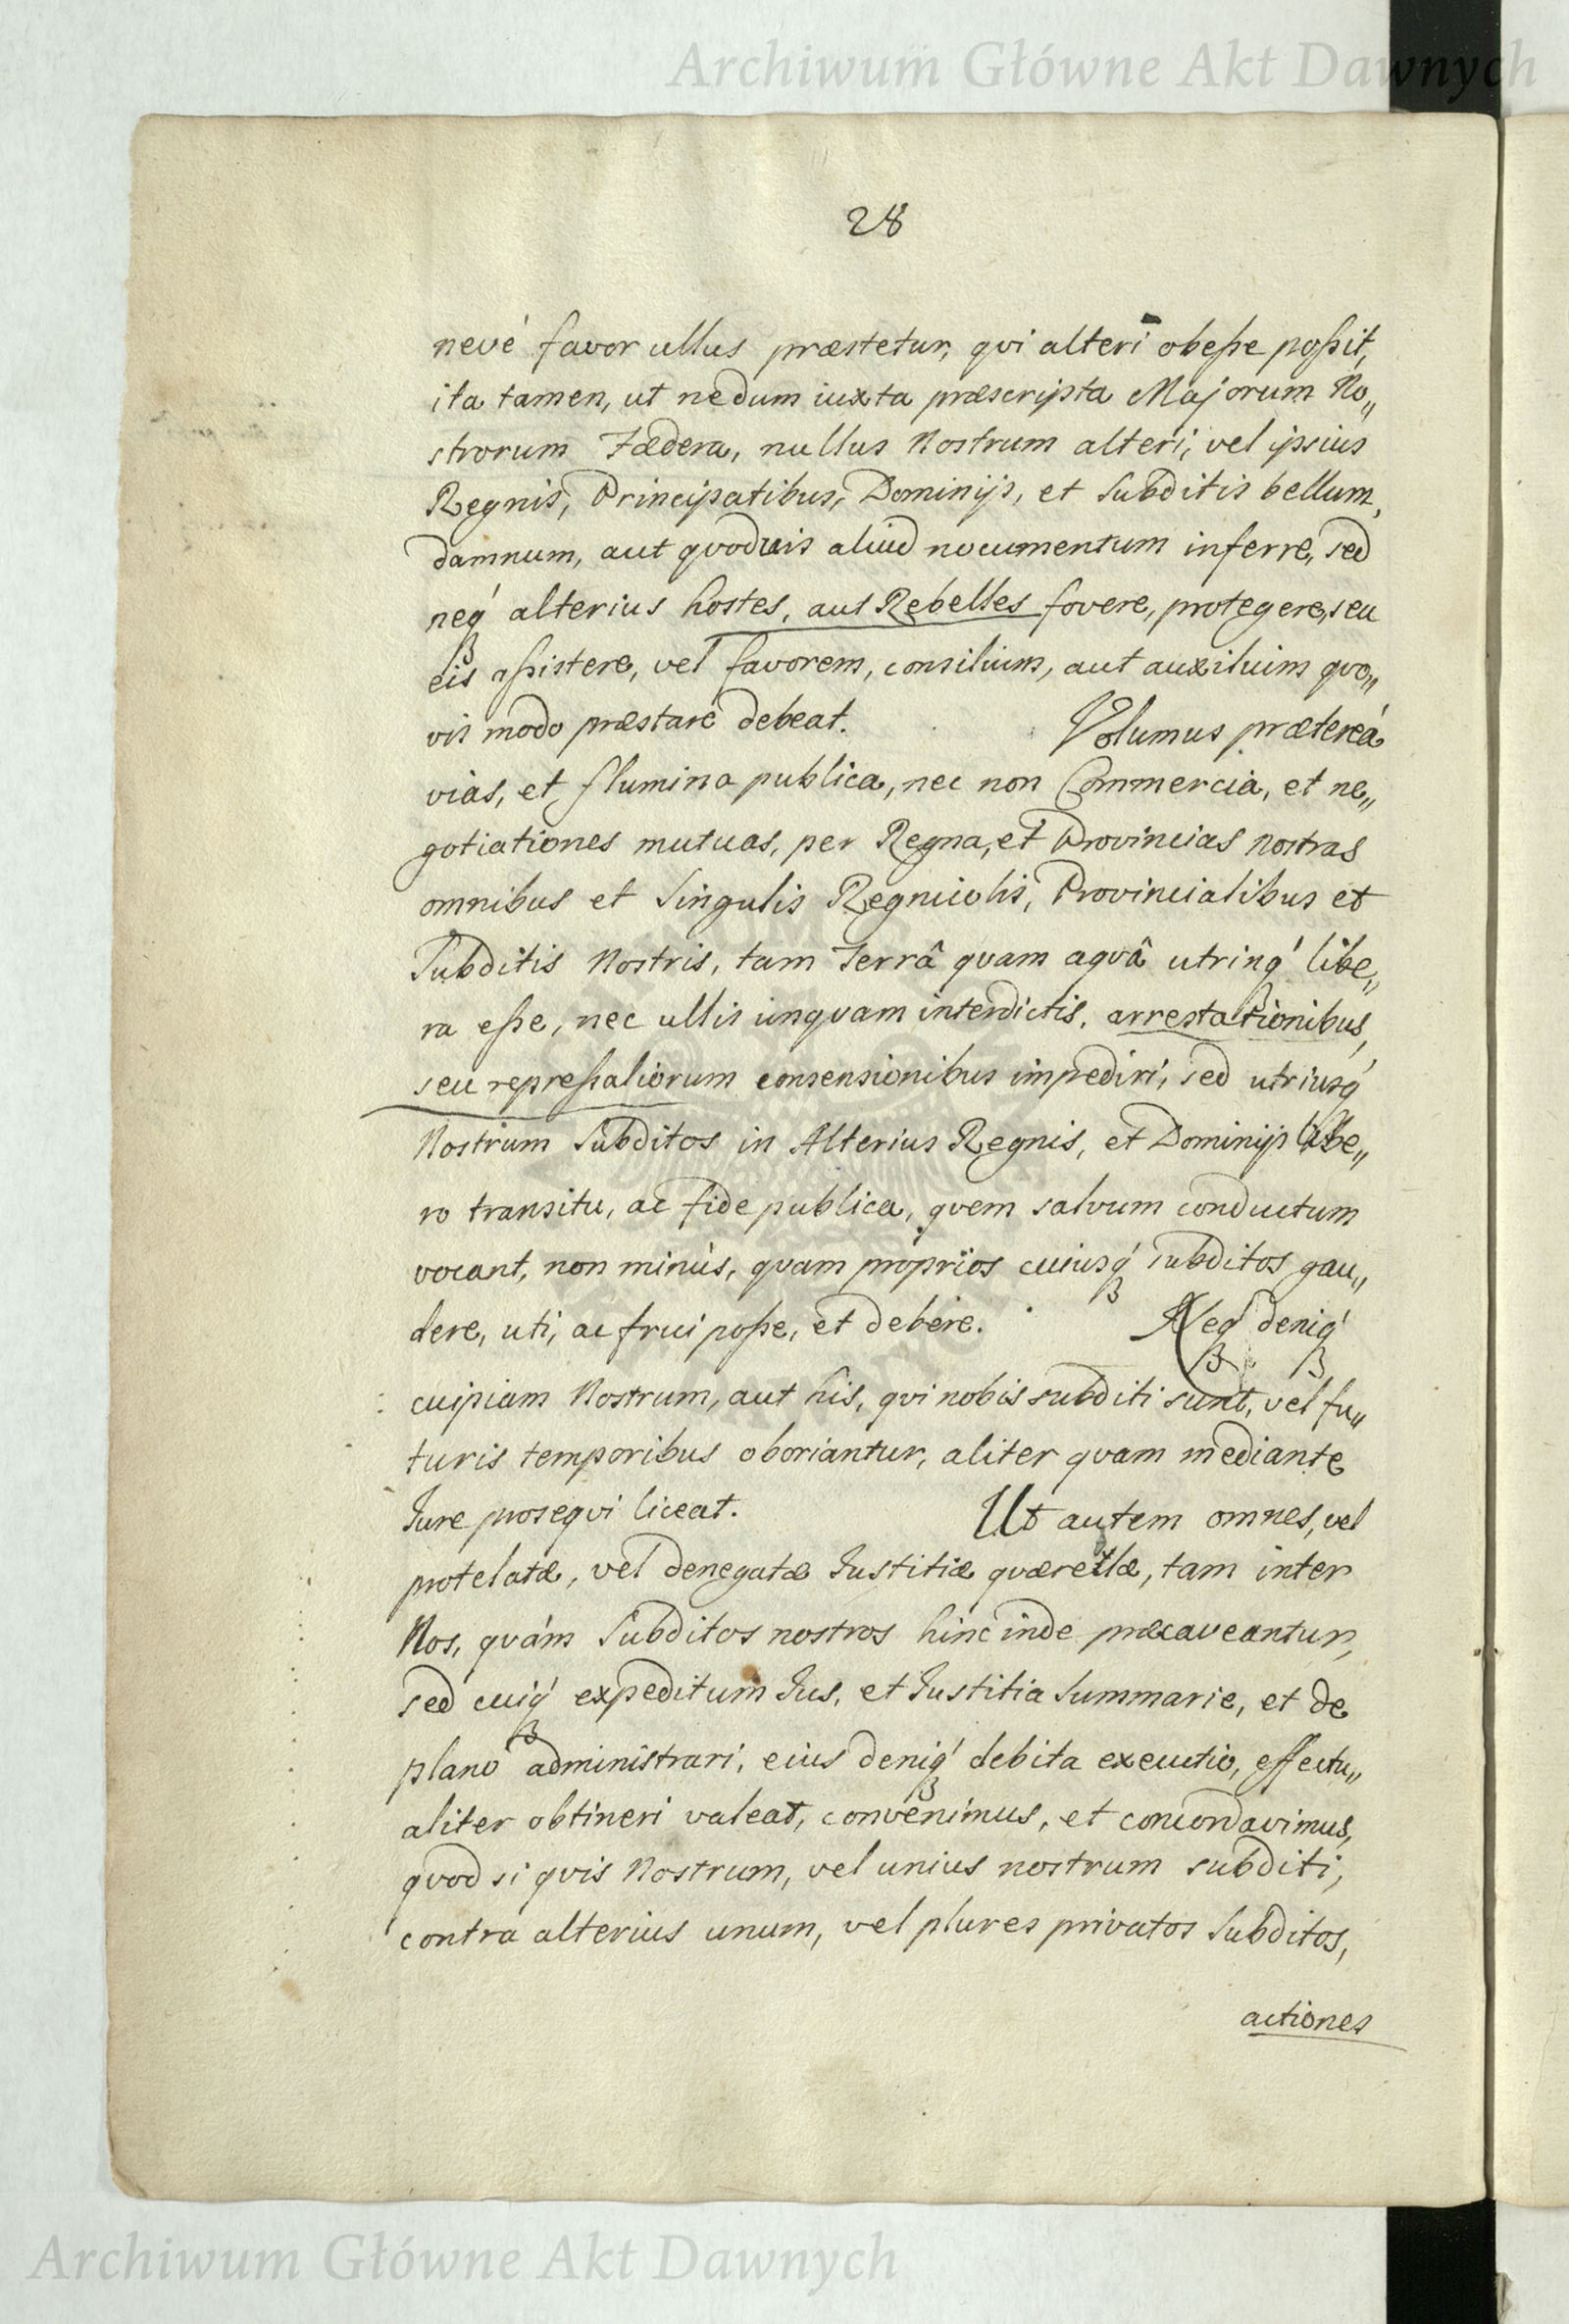 Archiwum Główne Akt Dawnych
28
nevé favor ullus præstetur, qvi alteri obeße poßit,
ita tamen, ut nedum iuxta præscripta Majorum No„
strorum Fædera, nullus Nostrum alteri, vel ipsius
Regnis, Principatibus, Dominijs, et Subditis bellum,
damnum, aut qvoduis aliud nocumentum inferre, sed
neq́ alterius hostes, aut Rebelles fovere, protegere, seu
eis aßistere, vel favorem, consilium, aut auxilium qvo„
vis modo præstare debeat. Volumus prætereá
vias, et flumina publica, nec non Commercia, et ne„
gotiationes mutuas, per Regna, et Provincias nostras
omnibus et Singulis Regnicolis, Provincialibus et
Subditis Nostris, tam Terrâ qvam aqvâ utrinq́ libe„
ra eße, nec ullis unqvam interdictis, arrestationibus,
seu repreßaliorum consensionibus impediri, sed utriusq́
Nostrum Subditos in Alterius Regnis, et Dominijs libe„
ro transitu, ac fide publica, qvem salvum conductum
vocant, non minùs, qvam proprios cuiusq́ subditos gau„
dere, uti, ac frui poße, et debere. Neq́ deniq́
cuipiam Nostrum, aut his, qvi nobis subditi sunt, vel fu„
turis temporibus oboriantur, aliter qvam mediante
Jure proseqvi liceat. Ut autem omnes, vel
protelatæ, vel denegatæ Justitiæ qværellæ, tam inter
Nos, qvám Subditos nostros hinc inde præcaveantur,
sed cuiq́ expeditum Jus, et Justitia Summarie, et de
plano administrari, eius deniq́ debita executio, effectu„
aliter obtineri valeat, convenimus, et concordavimus,
qvod si qvis Nostrum, vel unius nostrum subditi,
contra alterius unum, vel plures privatos Subditos,
actiones
Archiwum Główne Akt Dawnych